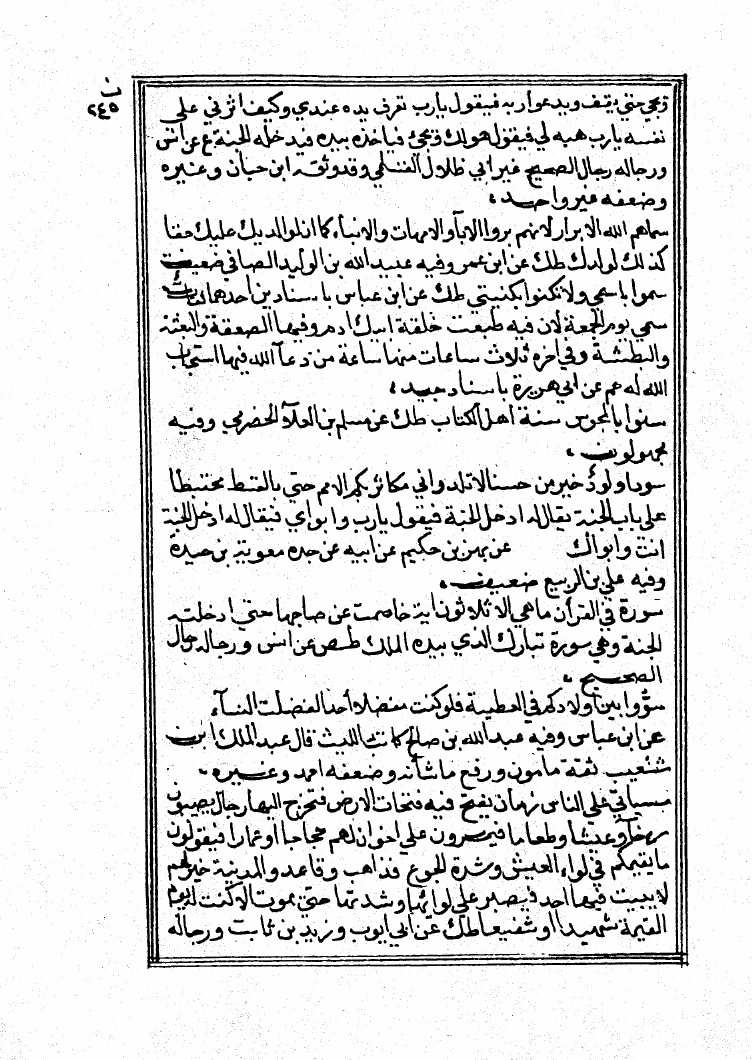 ن
٢٤٥
ويجي حتى يقف ويدعو أربه فيقول يارب تعرف يده عندي وكيف اثرني على
نفسه يارب هبه لي فيقول هو لك ويجئ فياخذه بيده فيدخله الجنة ع عن انس
ورجاله رجال الصحيح غير ابي ظلال القسملي وقد وثقه ابن حبان وغيره
وضعفه غير واحد
سماهم الله الابرار لانهم بروا الابآ والامهات والابنآء كما ان لوالديك عليك حقا
كذلك لولدك طك عن ابن عمر وفيه عبيد الله بن الوليد الصافي ضعيف
سموا باسمي ولا تكنوا بكنيتي طك عن ابن عباس باسنادين احدهما ثقات
سمي يوم الجمعة لان فيه طبعت خلقة ابيك ادم وفيها الصعقة والبعثة
والبطشة وفي اخره ثلاث ساعات منها ساعة من دعآ الله فيها استجاب
الله له عم عن ابي هريرة باسناد جيد
سنوا بالمجوس سنة اهل الكتاب طك عن مسلم بن العلآ الحضرمي وفيه
مجهولون
سودا ولود خير من حسنا لا تلد واني مكاثر بكم الامم حتى بالقسط محتبطا
على باب الجنة يقال له ادخل الجنة فيقول يارب وابواي فيقال له ادخل الجنة
انت وابواك عن بهز بن حكيم عن ابيه عن جده معوية بن حيدة
وفيه علي بن الربيع ضعيف
سورة في القرآن ماهي الا ثلاثون اية خاصمت عن صاحبها حتى ادخلته
الجنة وهي سورة تبارك الذي بيده الملك طس ص عن انس ورجاله رجال
الصحيح
سؤوا بين اولادكم في العطية فلو كنت مفضلا احدا لفضلت النسآء
عن ابن عباس وفيه عبد الله بن صالح كاتب الليث قال عبد الملك ابن
شعيب ثقة مامون ورفع ماشأنه وضعفه احمد وغيره
سياتي على الناس زمان يفتح فيه فتحات الارض فتخرج اليها رجال يصيبون
رخآء وعيشا وطعاما فيمرون على اخوان لهم حجاجا او عمارا فيقولون
ما يقيمكم في لواء العيش وشدة الجوع فذاهب وقاعد والمدينة خير لهم
لا يبيت فيها احد فيصبر على لوائها وشدتها حتى يموت الا كنت له يوم
القيمة شهيدا او شفيعا طك عن ابي ايوب وزيد بن ثابت ورجاله